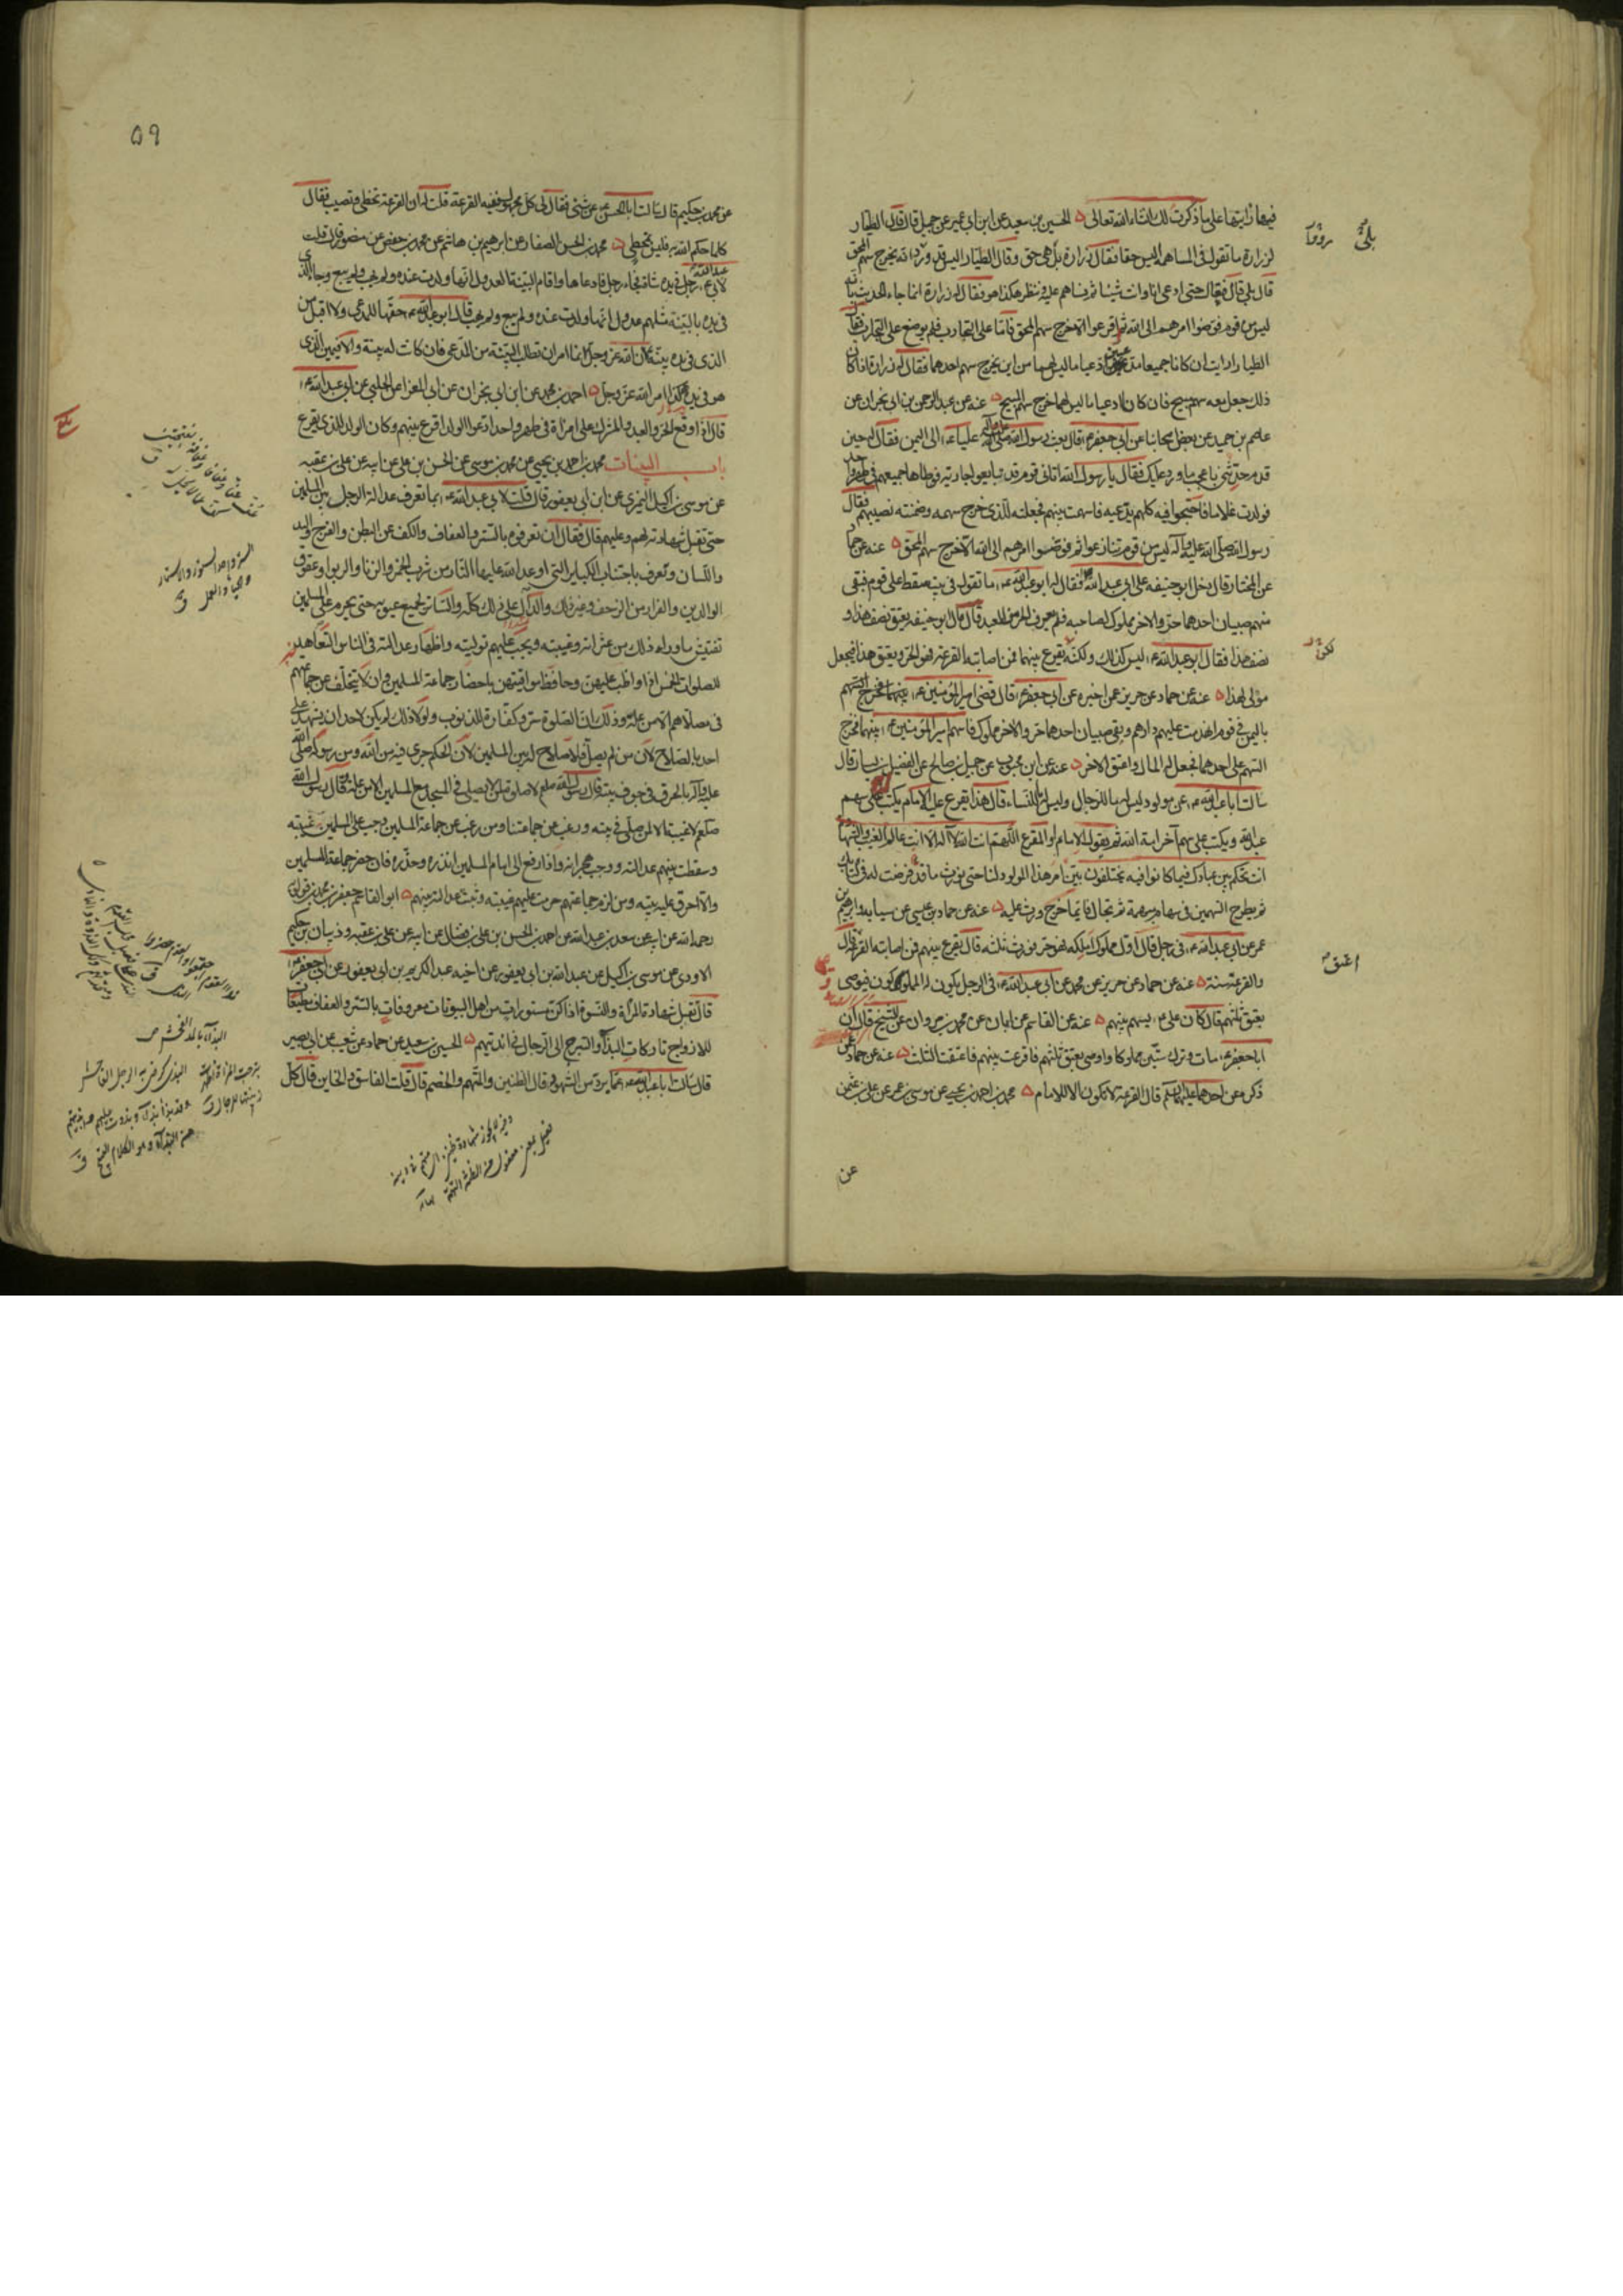 فيها رايتها على ما ذكرت لك ان شاء الله تعالى ه الحسين بن سعيد عن ابن ابى عمير عن جميل قال قال الطيار
لزرارة ما تقول فى المساهمة اليس حقا فقال زرارة بل هى حق وقال الطيار اليس قد ورد انه يخرج سهم المحق
قال بلى قال فتعال حتى ادعى انا وانت شيئا ثم نساهم عليه وننظر هكذا هو فقال له زرارة انما جاء الحديث بانه
ليس من قوم فوضوا امرهم الى الله ثم اقرعوا الا خرج سهم المحق فاما على التجارب فلم يوضع على التجارب فقال
الطيار ارايت ان كانا جميعا مدعيين ادعيا ما ليس لهما من اين يخرج سهم احدهما فقال زرارة اذا كان
ذلك جعل معه سهم مبيح فان كانا ادعيا ما ليس لهما خرج سهم المبيح ه عنه عن عبد الرحمن بن ابى نجران عن
عاصم بن حميد عن بعض اصحابنا عن ابى جعفر ع قال بعث رسول الله صلى الله عليه وآله عليا ع الى اليمن فقال له حين
قدم حدثنى باعجب ما ورد عليك فقال يا رسول الله اتانى قوم قد تبايعوا جارية فوطاها جميعهم فى طهر واحد
فولدت غلاما فاحتجوا فيه كلهم يدعيه فاسهمت بينهم فجعلته للذى خرج سهمه وضمنته نصيبهم فقال
رسول الله صلى الله عليه وآله ليس من قوم تنازعوا ثم فوضوا امرهم الى الله الا خرج سهم المحق ه عنه عن حماد
عن المختار قال دخل ابو حنيفه على ابى عبد الله فقال له ابو عبد الله ع ما تقول فى بيت سقط على قوم فبقى
منهم صبيان احدهما حر والاخر مملوك لصاحبه فلم يعرف الحر من العبد قال قال ابو حنيفه يعتق نصف هذا و
نصف هذا فقال ابو عبد الله ع ليس كذلك ولكنه يقرع بينهما فمن اصابته القرعة فهو الحر ويعتق هذا فيجعل
مولى لهذا ه عنه عن حماد عن حريز عمن اخبره عن ابى جعفر ع قال قضى امير المؤمنين ع
باليمن فى قوم انهدمت عليهم دارهم وبقى صبيان احدهما حر والاخر مملوك فاسهم امير المؤمنين ع بينهما فخرج
السهم على احدهما فجعل له المال واعتق الاخر ه عنه عن ابن محبوب عن جميل بن صالح عن الفضيل بن يسار قال
سالت ابا عبد الله ع عن مولود ليس له ما للرجال وليس له ما للنساء قال هذا يقرع عليه الامام يكتب على سهم
عبد الله ويكتب على سهم آخر امة الله ثم يقول الامام او المقرع اللهم انت الله لا اله الا انت عالم الغيب والشهادة
انت تحكم بين عبادك فيما كانوا فيه يختلفون بين امر هذا المولود لنا حتى يورث ما قد فرضت له فى كتابك
ثم يطرح السهمين فى سهام مبهمة ثم تجال فايما خرج ورث عليه ه عنه عن حماد بن عيسى عن سيابه وابرهيم بن
عمر عن ابى عبد الله ع فى رجل قال اول مملوك املكه فهو حر فورث ثلثه قال يقرع بينهم فمن اصابته القرعة اعتق قال
والقرعة سنة ه عنه عن حماد عن حريز عن محمد عن ابى عبد الله ع فى الرجل يكون له المملوكون فيوصى
بعتق ثلثهم قال كان على ع يسهم بينهم ه عنه عن القاسم عن ابان عن محمد بن مروان عن الشيخ قال ان
ابا جعفر ع مات وترك ستين مملوكا واوصى بعتق ثلثهم فاقرعت بينهم فاعتقت الثلث ه عنه عن حماد عمن
ذكره عن احدهما عليهما السلم قال القرعة لا تكون الا للامام ه محمد بن احمد بن يحيى عن موسى بن عمر عن على بن عثمن
عن
بلى
لكن
اعتق
٥٩
عن محمد بن حكيم قال سالت ابا الحسن ع عن شئ فقال لى كل مجهول ففيه القرعة قلت له ان القرعة تخطى وتصيب فقال
كلما حكم الله به فليس بمخطى ه محمد بن الحسن الصفار عن ابرهيم بن هاشم عن محمد بن حفص عن منصور قال قلت
لابى عبد الله ع رجل فى يده شاة فجاء رجل فادعاها واقام البينة العدول انها ولدت عنده ولم يهب ولم يبع وجاء الذى
فى يده بالبينة مثلهم عدول انها ولدت عنده ولم يبع ولم يهب قال ابو عبد الله ع حقها للمدعى ولا اقبل من
الذى فى يده بينة لان الله عز وجل انما امر ان تطلب البينة من المدعى فان كانت له بينة والا فيمين الذى
هو فى يده هكذا امر الله عز وجل ه احمد بن محمد عن ابن ابى نجران عن ابى المغرا عن الحلبى عن ابى عبد الله ع
قال اذا وقع الحر والعبد والمشرك على امراة فى طهر واحد ادعوا الولد اقرع بينهم وكان الولد للذى يقرع
باب البينات محمد بن احمد بن يحيى عن محمد بن موسى عن الحسن بن على عن ابيه عن على بن عقبه
عن موسى بن اكيل النميرى عن ابن ابى يعفور قال قلت لابى عبد الله ع بما تعرف عدالة الرجل بين المسلمين
حتى تقبل شهادته لهم وعليهم قال فقال ان تعرفوه بالستر والعفاف والكف عن البطن والفرج واليد
واللسان وتعرف باجتناب الكباير التى اوعد الله عليها النار من شرب الخمر والزنا والربوا وعقوق
الوالدين والفرار من الزحف وغير ذلك والدال على ذلك كله والساتر لجميع عيوبه حتى يحرم على المسلمين
تفتيش ما وراء ذلك من عثراته وغيبته ويجب عليهم توليته واظهار عدالته فى الناس التعاهد
للصلوات الخمس اذا واظب عليهن وحافظ مواقيتهن باحضار جماعة المسلمين وان لا يتخلف عن جماعتهم
فى مصلاهم الا من علة وذلك ان الصلوة ستر وكفارة للذنوب ولولا ذلك لم يكن لاحد ان يشهد على
احد بالصلاح لان من لم يصل فلا صلاح له بين المسلمين لان الحكم جرى فيه من الله ومن رسوله صلى الله
عليه وآله بالحرق فى جوف بيته قال رسول الله صلعم لا صلوة لمن لا يصلى فى المسجد مع المسلمين الا من علة وقال رسول الله
صلعم لا غيبة الا لمن صلى فى بيته ورغب عن جماعتنا ومن رغب عن جماعة المسلمين وجب على المسلمين غيبته
وسقطت بينهم عدالته ووجب هجرانه واذا رفع الى امام المسلمين انذره وحذره فان حضر جماعة المسلمين
والا احرق عليه بيته ومن لزم جماعتهم حرمت عليهم غيبته وثبتت عدالته بينهم ه ابو القاسم جعفر بن محمد بن قولويه
رحمه الله عن ابيه عن سعد بن عبد الله عن احمد بن الحسن بن على بن فضال عن ابيه عن على بن عقبه وذبيان بن حكيم
الاودى عن موسى بن اكيل عن عبد الله بن ابى يعفور عن اخيه عبد الكريم بن ابى يعفور عن ابى جعفر ع
قال تقبل شهادة المراة والنسوة اذا كن مستورات من اهل البيوتات معروفات بالستر والعفاف مطيعات
للازواج تاركات البذاء والتبرج الى الرجال فى انديتهم ه الحسين بن سعيد عن حماد عن شعيب عن ابى بصير
قال سالت ابا عبد الله ع عما يرد من الشهود قال الظنين والمتهم والخصم قال قلت الفاسق والخاين قال كل